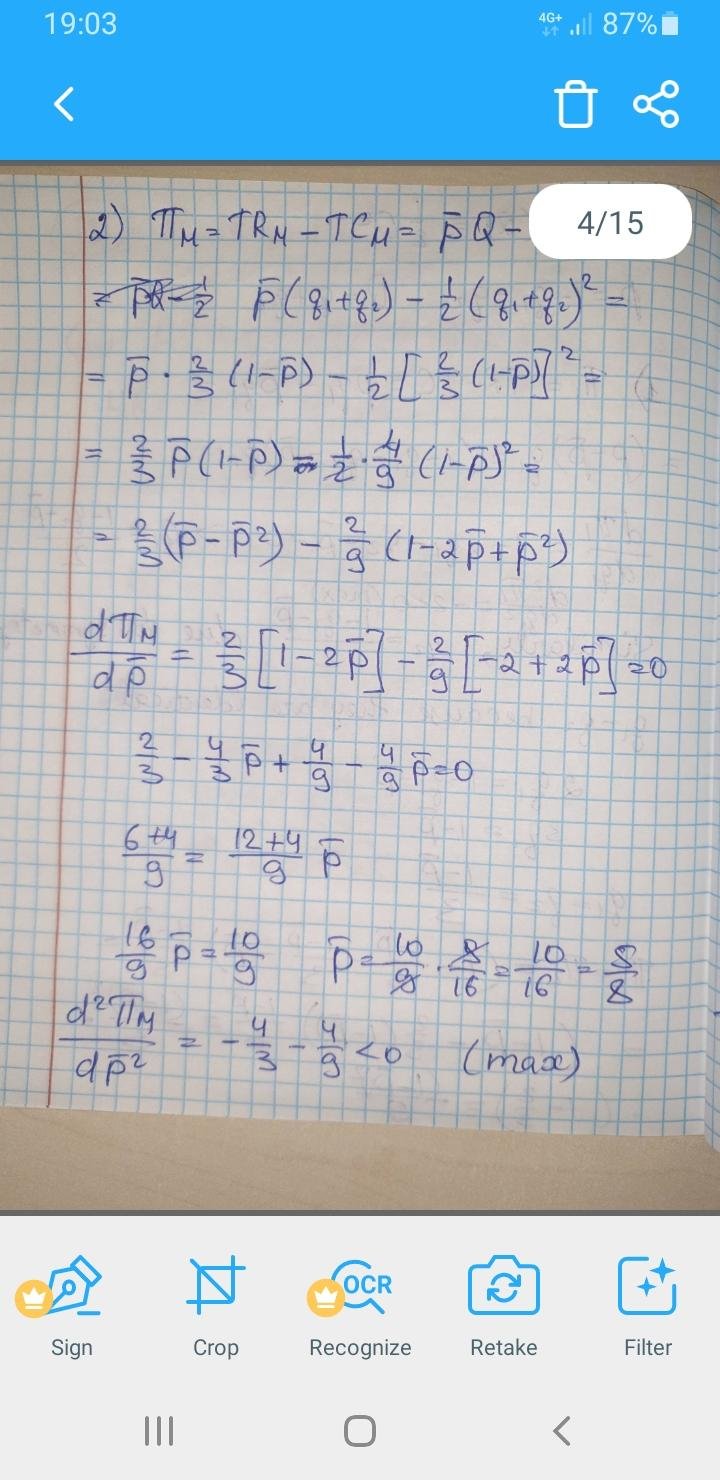 19:03
4G+ 87%
4/15
2) Π_M = TR_M − TC_M = p̄Q −
= p̄(q₁+q₂) − 1/2 (q₁+q₂)² =
= p̄ · 2/3 (1−p̄) − 1/2 [2/3 (1−p̄)]² =
= 2/3 p̄(1−p̄) − 1/2 · 4/9 (1−p̄)² =
= 2/3 (p̄ − p̄²) − 2/9 (1−2p̄+p̄²)
dΠ_M/dp̄ = 2/3 [1−2p̄] − 2/9 [−2+2p̄] = 0
2/3 − 4/3 p̄ + 4/9 − 4/9 p̄ = 0
6+4/9 = 12+4/9 p̄
16/9 p̄ = 10/9 p̄ = 10/9 · 9/16 = 10/16 = 5/8
d²Π_M/dp̄² = − 4/3 − 4/9 < 0 (max)
OCR
Sign Crop Recognize Retake Filter